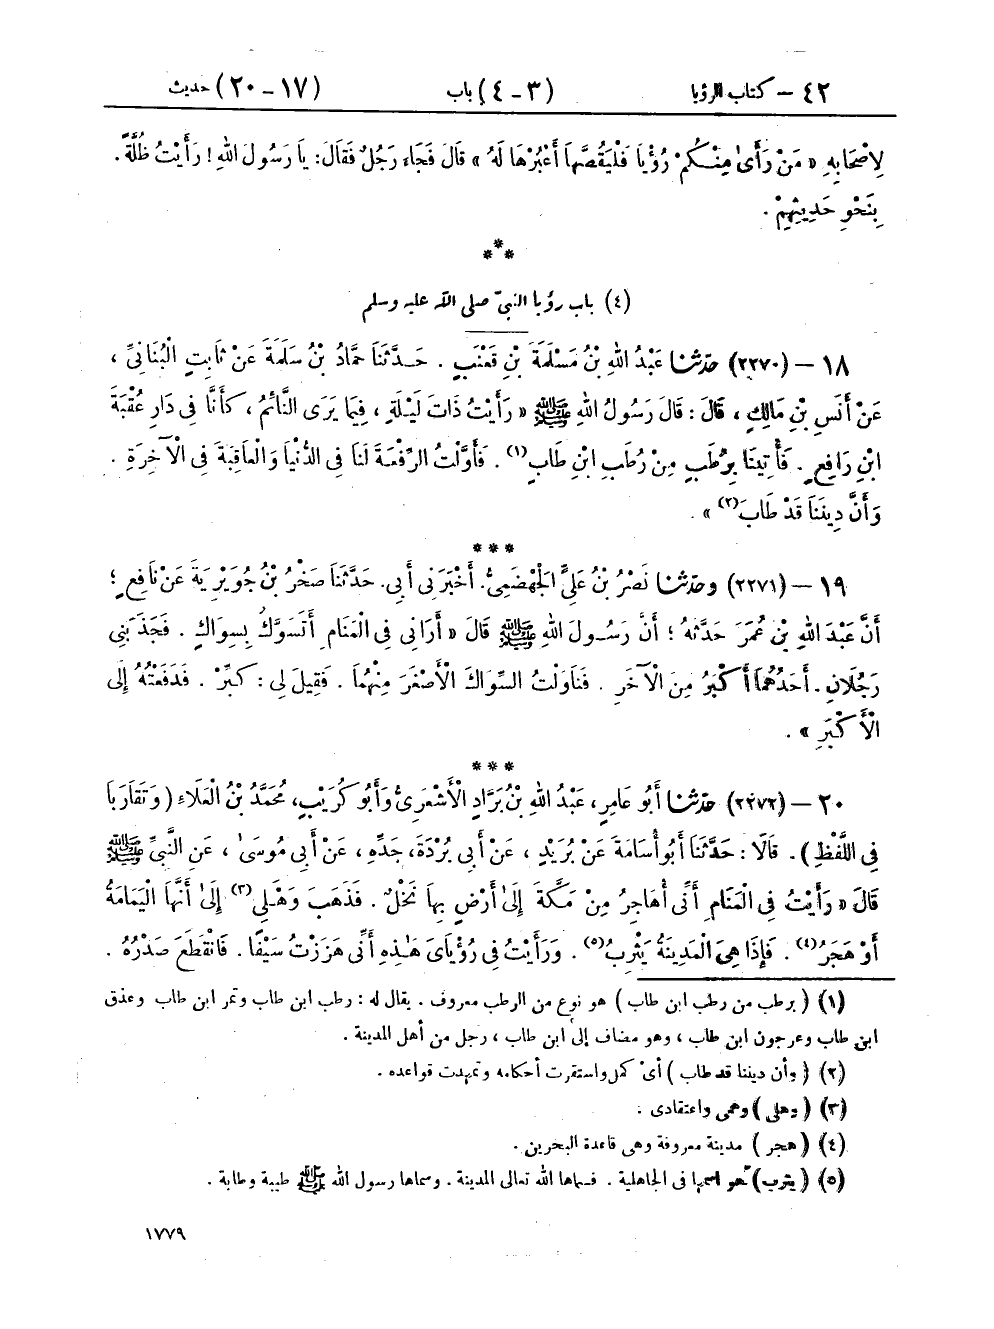 ٤٢ – كتاب الرؤيا (٣ – ٤) باب (١٧ – ٢٠) حديث
لِأَصْحَابِهِ « مَنْ رَأَىٰ مِنْكُمْ رُؤْيَا فَلْيَقُصَّهَا أَعْبُرْهَا لَهُ » قَالَ فَجَاءَ رَجُلٌ فَقَالَ : يَا رَسُولَ اللهِ ! رَأَيْتُ ظُلَّةً .
بِنَحْوِ حَدِيثِهِمْ .
***
(٤) باب رؤيا النبيّ صلى الله عليه وسلم
١٨ – (٢٢٧٠) حدّثنا عَبْدُ اللهِ بْنُ مَسْلَمَةَ بْنِ قَعْنَبٍ . حَدَّثَنَا حَمَّادُ بْنُ سَلَمَةَ عَنْ ثَابِتٍ الْبُنَانِيِّ ،
عَنْ أَنَسِ بْنِ مَالِكٍ ، قَالَ : قَالَ رَسُولُ اللهِ ﷺ « رَأَيْتُ ذَاتَ لَيْلَةٍ ، فِيمَا يَرَى النَّائِمُ ، كَأَنَّا فِي دَارِ عُقْبَةَ
ابْنِ رَافِعٍ . فَأُتِينَا بِرُطَبٍ مِنْ رُطَبِ ابْنِ طَابٍ(١) . فَأَوَّلْتُ الرِّفْعَةَ لَنَا فِي الدُّنْيَا وَالْعَاقِبَةَ فِي الْآخِرَةِ .
وَأَنَّ دِينَنَا قَدْ طَابَ(٢) » .
***
١٩ – (٢٢٧١) وحدّثنا نَصْرُ بْنُ عَلِيٍّ الْجَهْضَمِيُّ . أَخْبَرَنِي أَبِي . حَدَّثَنَا صَخْرُ بْنُ جُوَيْرِيَةَ عَنْ نَافِعٍ ؛
أَنَّ عَبْدَ اللهِ بْنَ عُمَرَ حَدَّثَهُ ؛ أَنَّ رَسُولَ اللهِ ﷺ قَالَ « أَرَانِي فِي الْمَنَامِ أَتَسَوَّكُ بِسِوَاكٍ . فَجَذَبَنِي
رَجُلَانِ . أَحَدُهُمَا أَكْبَرُ مِنَ الْآخَرِ . فَنَاوَلْتُ السِّوَاكَ الْأَصْغَرَ مِنْهُمَا . فَقِيلَ لِي : كَبِّرْ . فَدَفَعْتُهُ إِلَى
الْأَكْبَرِ » .
***
٢٠ – (٢٢٧٢) حدّثنا أَبُو عَامِرٍ ، عَبْدُ اللهِ بْنُ بَرَّادٍ الْأَشْعَرِيُّ وَأَبُو كُرَيْبٍ ، مُحَمَّدُ بْنُ الْعَلَاءِ ( وَتَقَارَبَا
فِي اللَّفْظِ ) . قَالَا : حَدَّثَنَا أَبُو أُسَامَةَ عَنْ بُرَيْدٍ ، عَنْ أَبِي بُرْدَةَ ، جَدِّهِ ، عَنْ أَبِي مُوسَىٰ ، عَنِ النَّبِيِّ ﷺ
قَالَ « رَأَيْتُ فِي الْمَنَامِ أَنِّي أُهَاجِرُ مِنْ مَكَّةَ إِلَىٰ أَرْضٍ بِهَا نَخْلٌ . فَذَهَبَ وَهَلِي(٣) إِلَىٰ أَنَّهَا الْيَمَامَةُ
أَوْ هَجَرُ(٤) . فَإِذَا هِيَ الْمَدِينَةُ يَثْرِبُ(٥) . وَرَأَيْتُ فِي رُؤْيَايَ هَٰذِهِ أَنِّي هَزَزْتُ سَيْفًا . فَانْقَطَعَ صَدْرُهُ .
(١) ( برطب من رطب ابن طاب ) هو نوع من الرطب معروف . يقال له : رطب ابن طاب وتمر ابن طاب وعذق
ابن طاب وعرجون ابن طاب ، وهو مضاف إلى ابن طاب ، رجل من أهل المدينة .
(٢) ( وأن ديننا قد طاب ) أى كمل واستقرت أحكامه وتمهدت قواعده .
(٣) ( وهلى ) وهمى واعتقادى .
(٤) ( هجر ) مدينة معروفة وهى قاعدة البحرين .
(٥) ( يثرب ) هو اسمها فى الجاهلية . فسماها الله تعالى المدينة . وسماها رسول الله ﷺ طيبة وطابة .
١٧٧٩